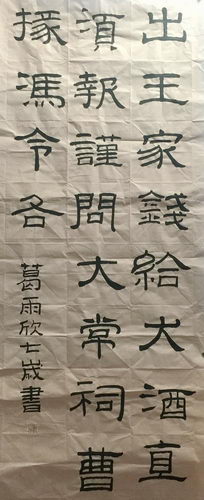 出王家錢給犬酒直
須報謹問大常祠曹
掾馮令各
葛雨欣七歲書